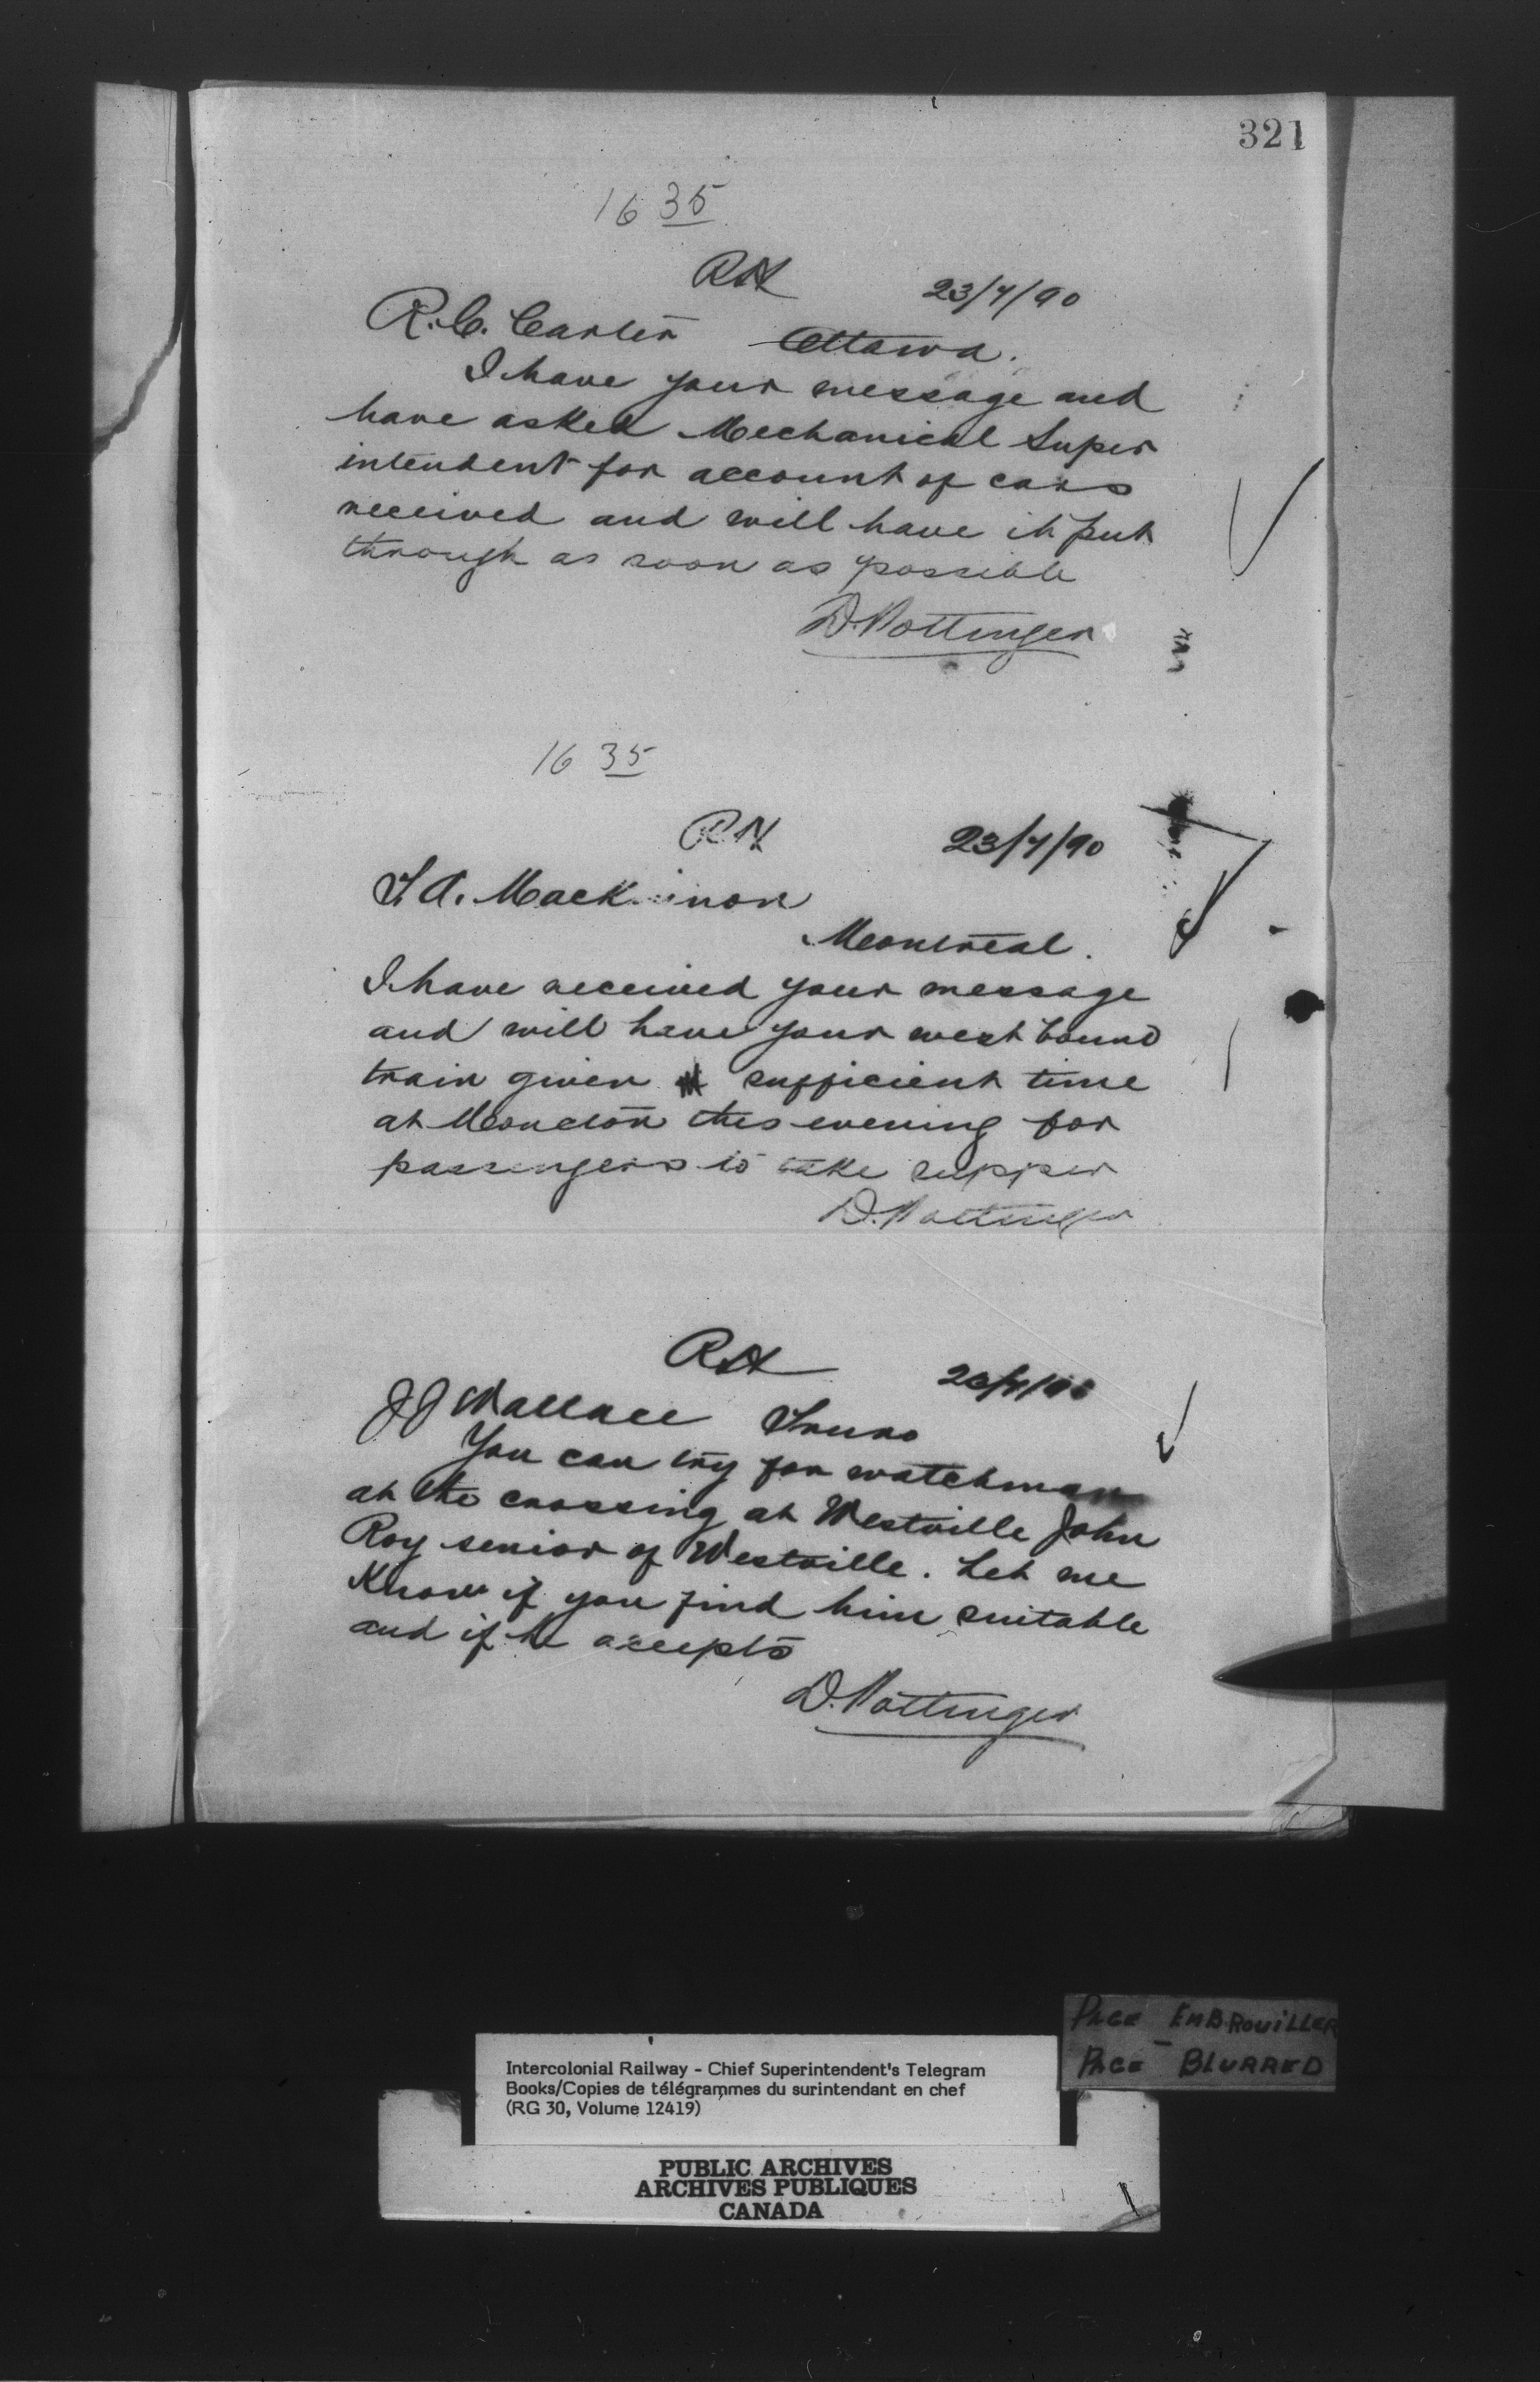 321
16 35
RN
23/7/90
R.C. Carter Ottawa.
I have your message and
have asked Mechanical Super
intendent for account of cars
received and will have it put
through as soon as possible
D. Pottinger
16 35
RN
23/7/90
T.A. Mackinnon
Montreal.
I have received your message
and will have your west bound
train given sufficient time
at Moncton this evening for
passengers to take supper
D. Pottinger
RN
JJ Wallace Truro
You can try for watchman
at the crossing at Westville John
Roy senior of Westville. Let me
Know if you find him suitable
and if he accepts
D. Pottinger
PAGE EMBROUILLER
PAGE BLURRED
Intercolonial Railway - Chief Superintendent's Telegram
Books/Copies de télégrammes du surintendant en chef
(RG 30, Volume 12419)
PUBLIC ARCHIVES
ARCHIVES PUBLIQUES
CANADA